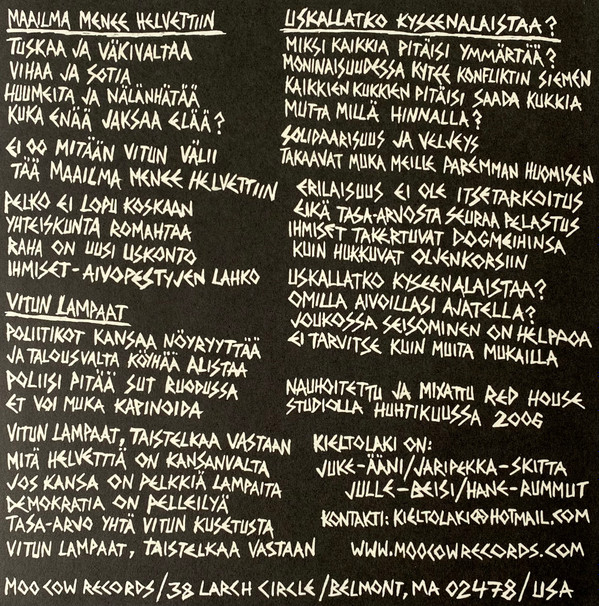 MAAILMA MENEE HELVETTIIN
TUSKAA JA VÄKIVALTAA
VIHAA JA SOTIA
HUUMEITA JA NÄLÄNHÄTÄÄ
KUKA ENÄÄ JAKSAA ELÄÄ?
EI OO MITÄÄN VITUN VÄLII
TÄÄ MAAILMA MENEE HELVETTIIN
PELKO EI LOPU KOSKAAN
YHTEISKUNTA ROMAHTAA
RAHA ON UUSI USKONTO
IHMISET-AIVOPESTYJEN LAHKO
VITUN LAMPAAT
POLIITIKOT KANSAA NÖYRYYTTÄÄ
JA TALOUSVALTA KÖYHÄÄ ALISTAA
POLIISI PITÄÄ SUT RUODUSSA
ET VOI MUKA KAPINOIDA
VITUN LAMPAAT, TAISTELKAA VASTAAN
MITÄ HELVETTIÄ ON KANSANVALTA
JOS KANSA ON PELKKIÄ LAMPAITA
DEMOKRATIA ON PELLEILYÄ
TASA-ARVO YHTÄ VITUN KUSETUSTA
VITUN LAMPAAT, TAISTELKAA VASTAAN
USKALLATKO KYSEENALAISTAA?
MIKSI KAIKKIA PITÄISI YMMÄRTÄÄ?
MONINAISUUDESSA KYTEE KONFLIKTIN SIEMEN
KAIKKIEN KUKKIEN PITÄISI SAADA KUKKIA
MUTTA MILLÄ HINNALLA?
SOLIDAARISUUS JA VELJEYS
TAKAAVAT MUKA MEILLE PAREMMAN HUOMISEN
ERILAISUUS EI OLE ITSETARKOITUS
EIKÄ TASA-ARVOSTA SEURAA PELASTUS
IHMISET TAKERTUVAT DOGMEIHINSA
KUIN HUKKUVAT OLJENKORSIIN
USKALLATKO KYSEENALAISTAA?
OMILLA AIVOILLASI AJATELLA?
JOUKOSSA SEISOMINEN ON HELPAOA
EI TARVITSE KUIN MUITA MUKAILLA
NAUHOITETTU JA MIXATTU RED HOUSE
STUDIOLLA HUHTIKUUSSA 2006
KIELTOLAKI ON:
JUKE-ÄÄNI/JARIPEKKA-SKITTA
JULLE-BEISI/HANE-RUMMUT
KONTAKTI: KIELTOLAKI@HOTMAIL.COM
WWW.MOOCOWRECORDS.COM
MOO COW RECORDS/38 LARCH CIRCLE/BELMONT, MA 02478/USA